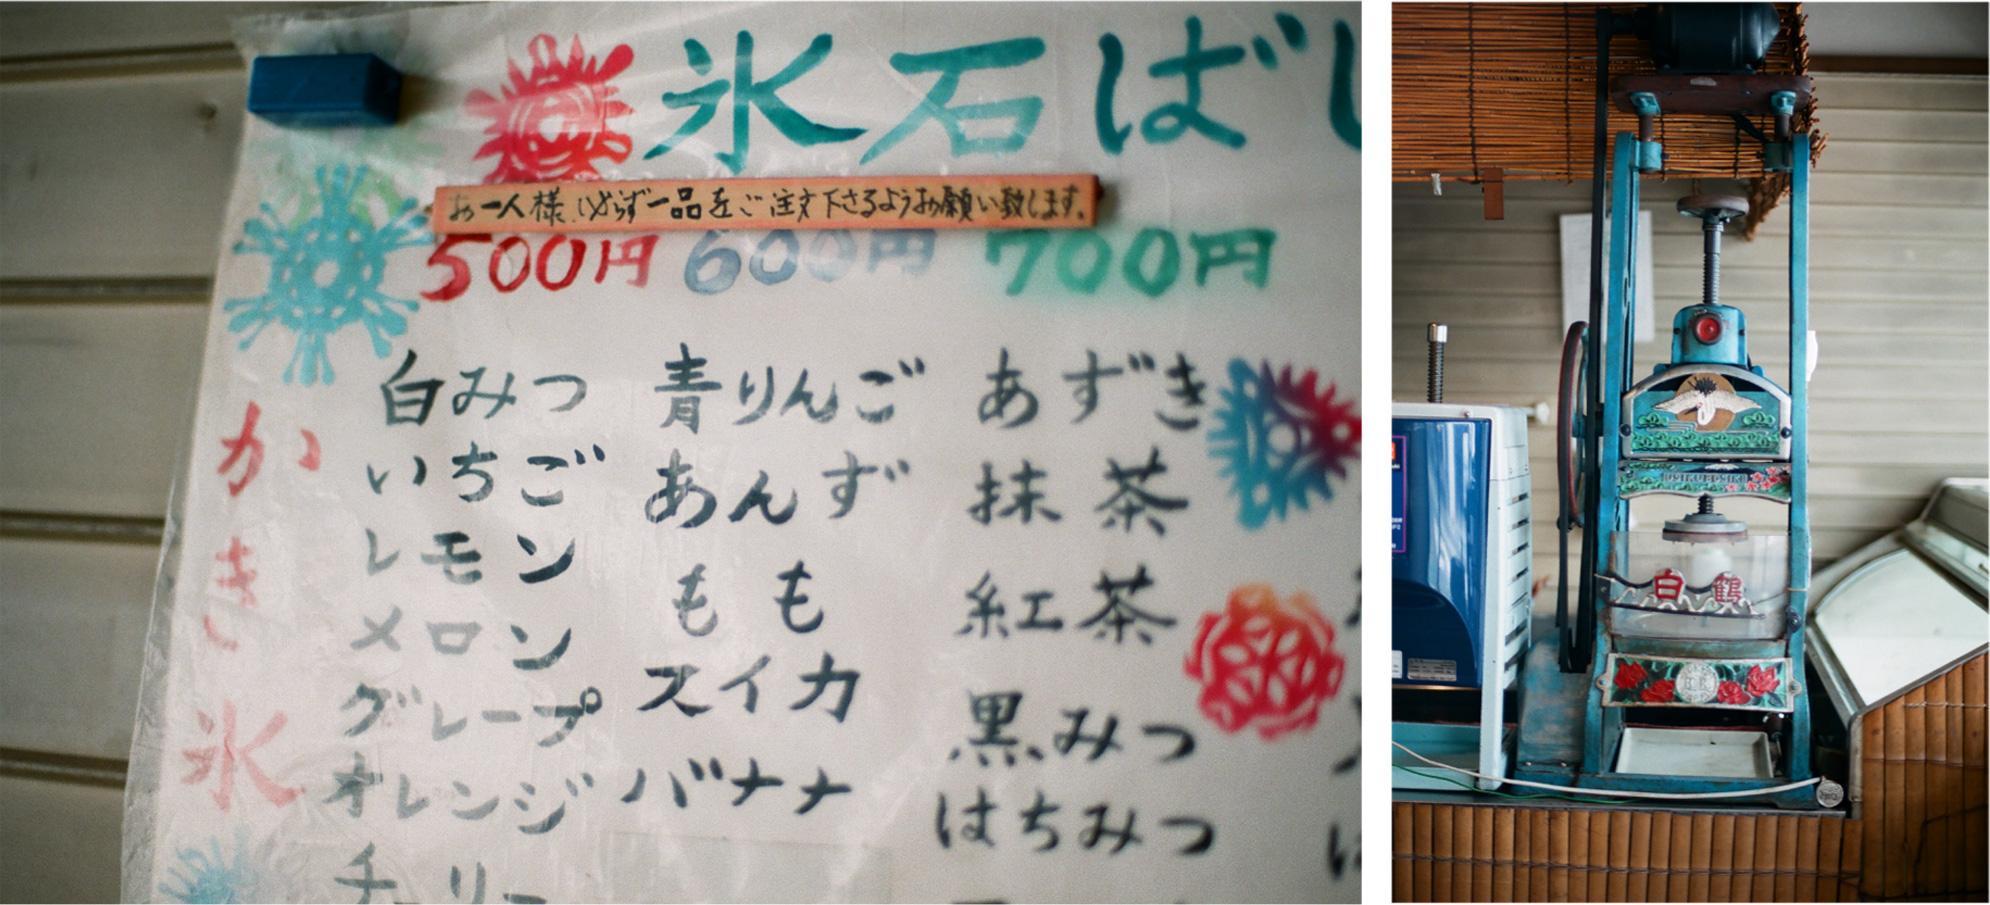 氷石ば
お一人様、必らず一品をご注文下さるようお願い致します。
500円 600円 700円
かき氷
白みつ
いちご
レモン
メロン
グレープ
オレンジ
チェリー
青りんご
あんず
もも
スイカ
バナナ
あずき
抹茶
紅茶
黒みつ
はちみつ
白鶴